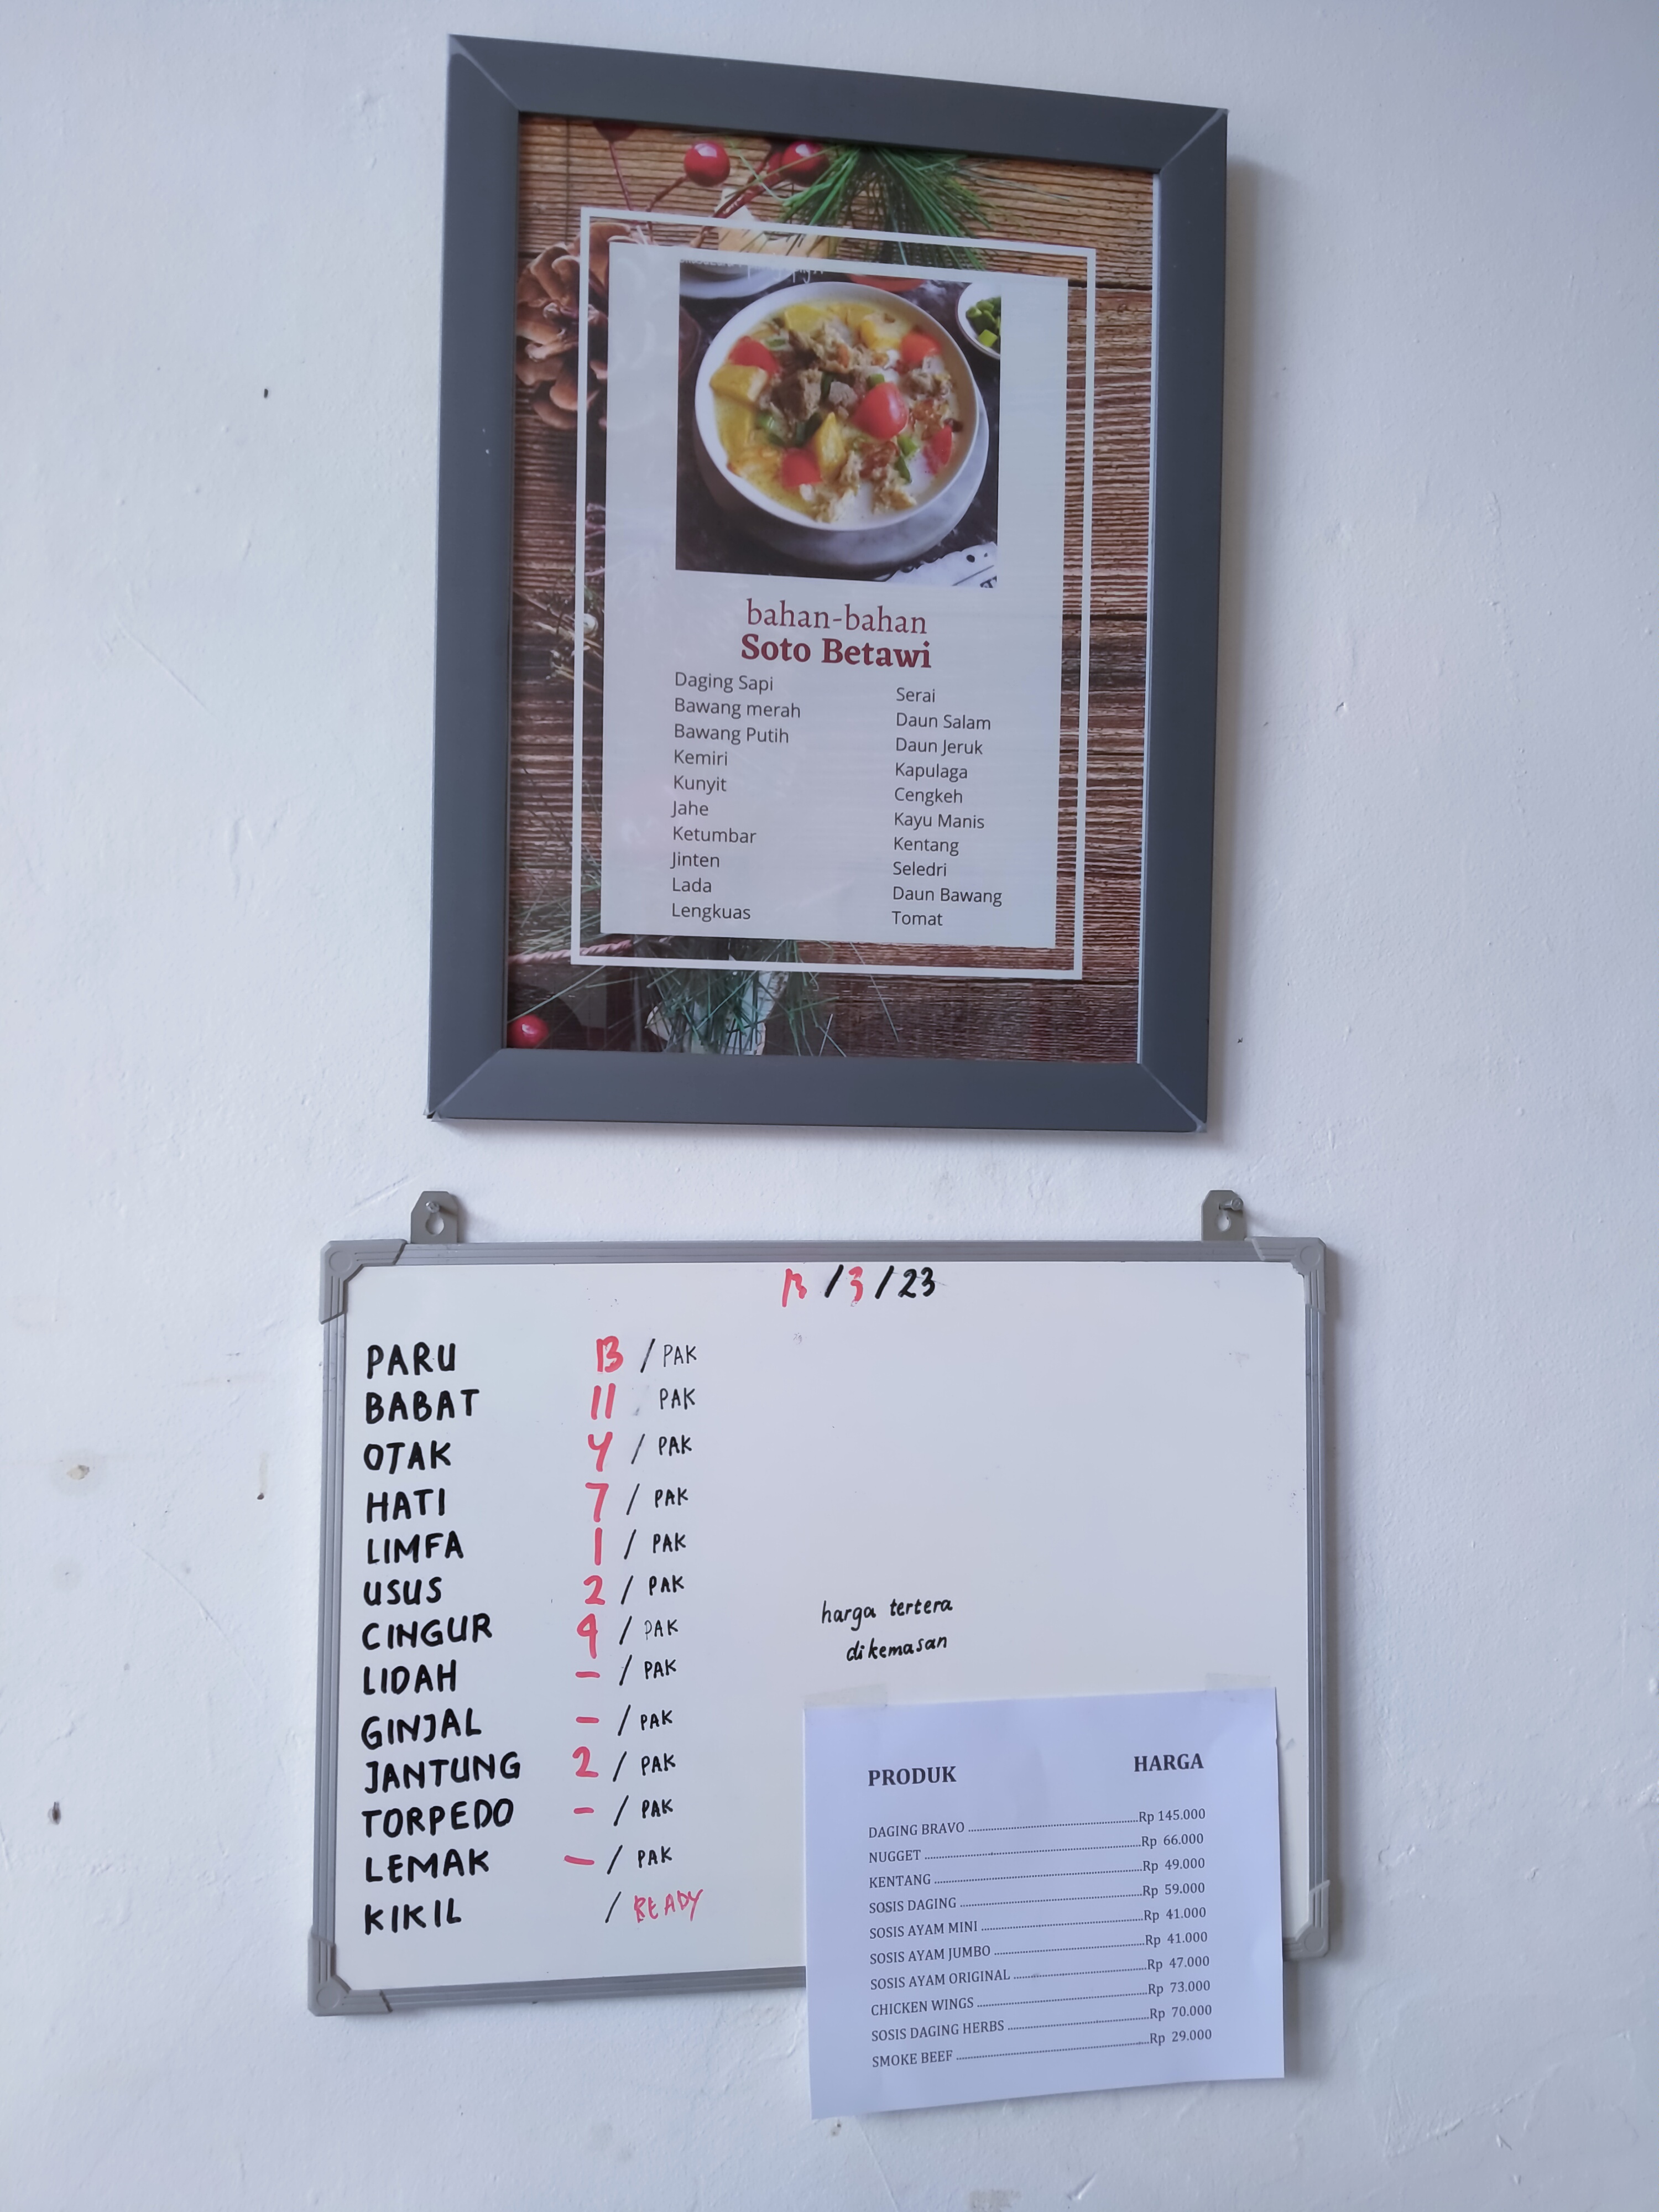 bahan-bahan
Soto Betawi
Daging Sapi
Bawang merah
Bawang Putih
Kemiri
Kunyit
Jahe
Ketumbar
Jinten
Lada
Lengkuas
Serai
Daun Salam
Daun Jeruk
Kapulaga
Cengkeh
Kayu Manis
Kentang
Seledri
Daun Bawang
Tomat
13/3/23
PARU 13 / PAK
BABAT 11 PAK
OTAK 4 / PAK
HATI 7 / PAK
LIMFA 1 / PAK
USUS 2 / PAK
CINGUR 9 / PAK
LIDAH - / PAK
GINJAL - / PAK
JANTUNG 2 / PAK
TORPEDO - / PAK
LEMAK - / PAK
KIKIL / READY
harga tertera
dikemasan
PRODUK HARGA
DAGING BRAVO Rp 145.000
NUGGET Rp 66.000
KENTANG Rp 49.000
SOSIS DAGING Rp 59.000
SOSIS AYAM MINI Rp 41.000
SOSIS AYAM JUMBO Rp 41.000
SOSIS AYAM ORIGINAL Rp 47.000
CHICKEN WINGS Rp 73.000
SOSIS DAGING HERBS Rp 70.000
SMOKE BEEF Rp 29.000